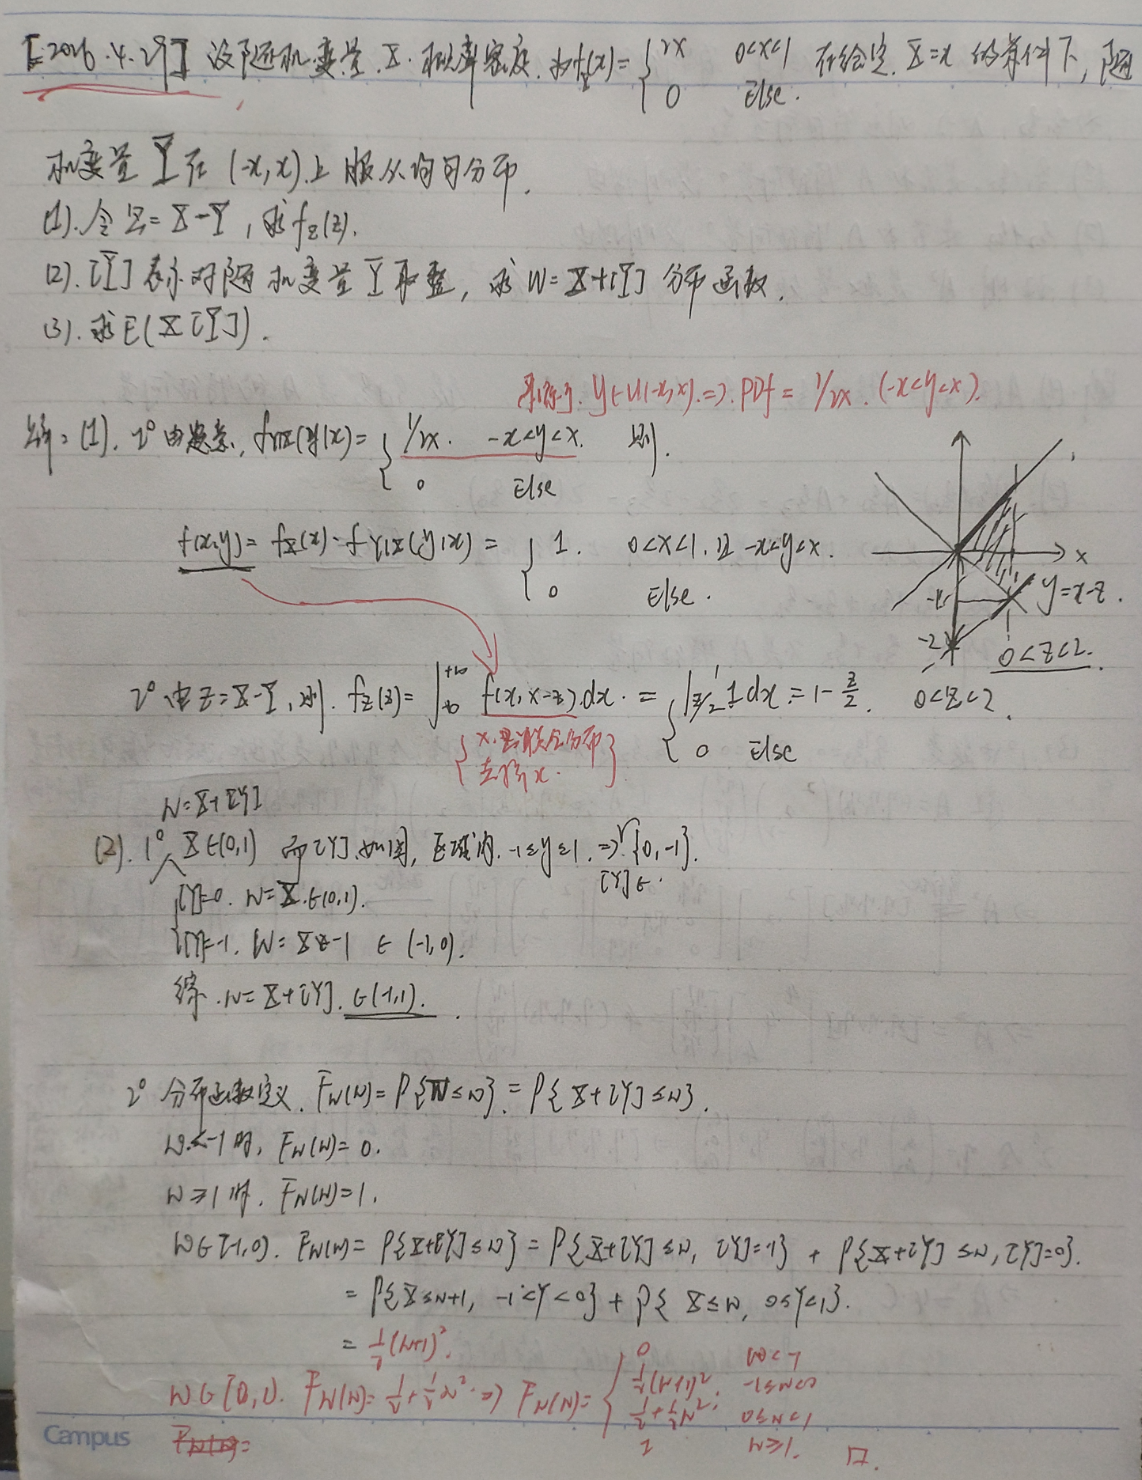 【2026.4.29】设随机变量X.概率密度.为f_X(x)={2x 0<x<1 0 Else. 在给定X=x的条件下,随
机变量Y在(-x,x)上服从均匀分布.
(1).令Z=X-Y,求f_Z(z).
(2).[Y]表示对随机变量Y取整,求W=X+[Y]分布函数.
(3).求E(X[Y]).
y∈U(-x,x).=>.PDf=1/2x.(-x<y<x).
解:(1).1°由题意,f_{Y|X}(y|x)={1/2x. -x<y<x. 0 Else 则.
f(x,y)=f_X(x)·f_{Y|X}(y|x)={1. 0<x<1.且-x<y<x. 0 Else.
x
y=x-z.
-2
0<z<2.
2°由Z=X-Y,则.f_Z(z)=∫_{-∞}^{+∞}f(x,x-z)dx.={∫_{z/2}^{1}1dx=1-z/2. 0<z<2. 0 Else
W=X+[Y]
(2).1° X∈(0,1) 而[Y].如图,区域内.-1≤y≤1.=>{0,-1}.
[Y]∈.
[Y]=0.W=X.∈(0,1).
[Y]=-1.W=X-1 ∈(-1,0).
综.W=X+[Y].∈(-1,1).
2°分布函数定义.F_W(w)=P{W≤w}=P{X+[Y]≤w}.
w<-1时,F_W(w)=0.
w≥1时.F_W(w)=1.
w∈[-1,0).F_W(w)=P{X+[Y]≤w}=P{X+[Y]≤w,[Y]=-1}+P{X+[Y]≤w,[Y]=0}.
=P{X≤w+1,-1<Y<0}+P{X≤w,0≤Y<1}.
=1/2(w+1)².
w∈[0,1).F_W(w)=1/2+1/2w².=>F_W(w)={0 w<-1 1/2(w+1)², -1≤w<0 1/2+1/2w², 0≤w<1 1 w≥1.
Campus
F_W(w)=